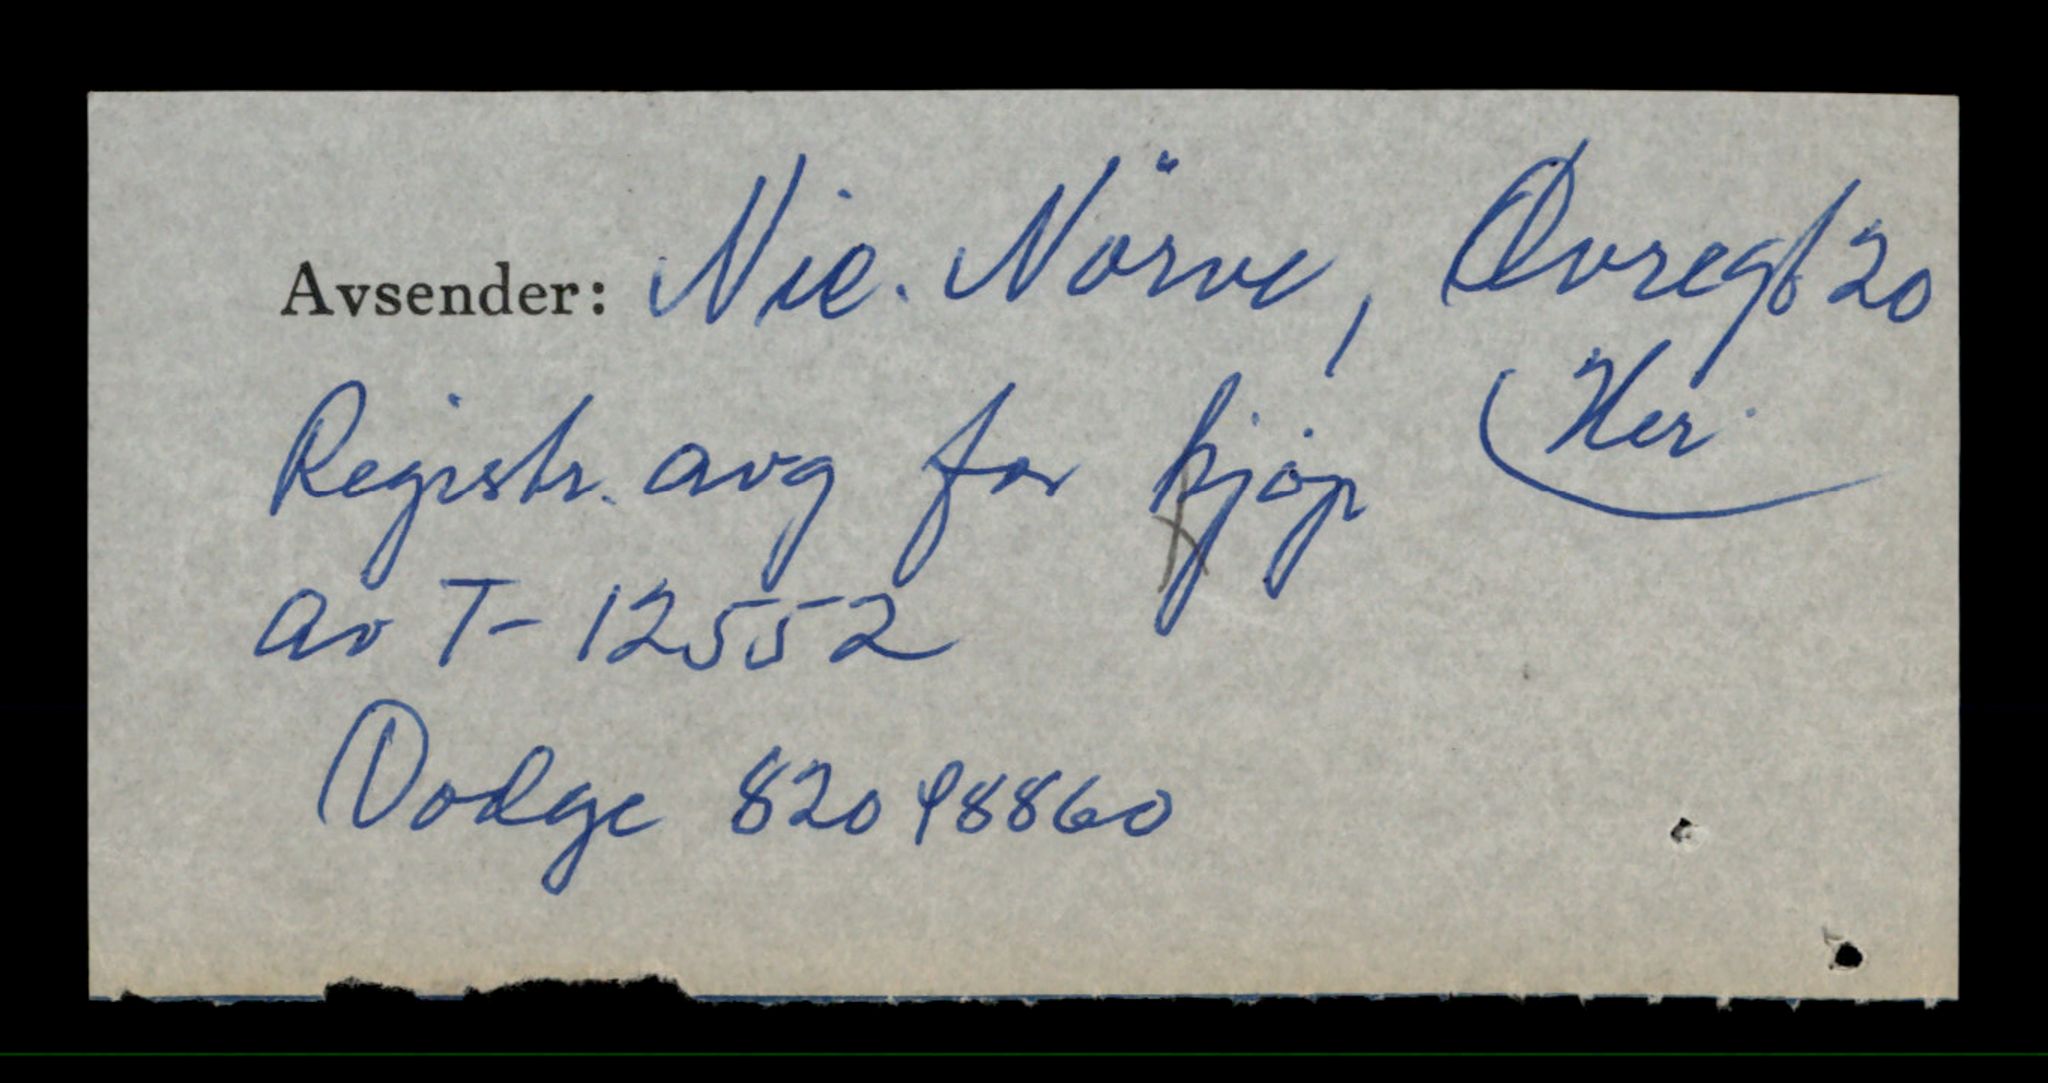 Avsender: Nic. Nörve, Øvregt 20
Her.
Registr. avg for kjøp
av T- 12552
Dodge 82098860